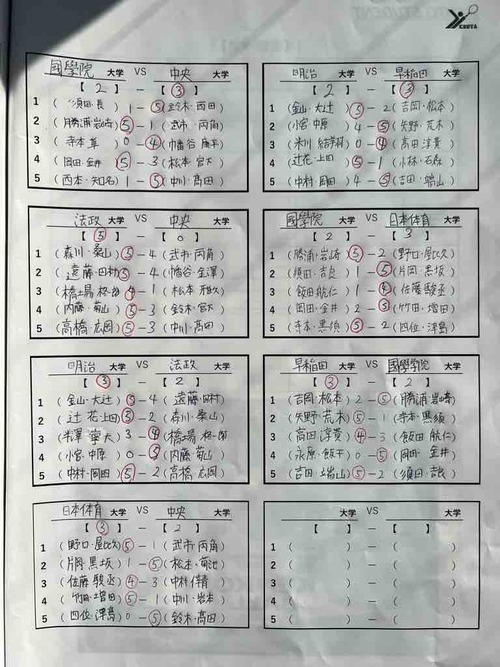 國學院 大学 VS 中央 大学
【 2 】 － 【 ③ 】
1 ( 須田・長 ) 1 － ⑤ ( 鈴木・西田 )
2 ( 勝浦・岩崎 ) ⑤ － 1 ( 武市・丙角 )
3 ( 寺本 ) 0 － ④ ( 幡谷 康平 )
4 ( 岡田・金井 ) ⑤ － 3 ( 松本・宮下 )
5 ( 西本・知名 ) 1 － ⑤ ( 中川・高田 )
明治 大学 VS 早稲田 大学
【 2 】 － 【 ③ 】
1 ( 金山・大辻 ) ⑤ － 2 ( 吉岡・松本 )
2 ( 小宮・中原 ) 4 － ⑤ ( 矢野・荒木 )
3 ( 米川 ) 0 － ④ ( 高田 淳貴 )
4 ( 辻花・上田 ) ⑤ － 1 ( 小林・石森 )
5 ( 中村・岡田 ) 4 － ⑤ ( 吉田・端山 )
法政 大学 VS 中央 大学
【 ⑤ 】 － 【 0 】
1 ( 森川・桑山 ) ⑤ － 4 ( 武市・丙角 )
2 ( 遠藤・田村 ) ⑤ － 4 ( 幡谷・金澤 )
3 ( 橋場 柊一郎 ) ④ － 1 ( 松本 )
4 ( 内藤・菊山 ) ⑤ － 3 ( 鈴木・宮下 )
5 ( 高橋・広岡 ) ⑤ － 3 ( 中川・高田 )
國學院 大学 VS 日本体育 大学
【 2 】 － 【 3 】
1 ( 勝浦・岩崎 ) ⑤ － 2 ( 野口・屋比久 )
2 ( 須田・吉良 ) 1 － ⑤ ( 片岡・黒坂 )
3 ( 飯田 航仁 ) 1 － ④ ( 佐藤 駿丞 )
4 ( 岡田・金井 ) 2 － ⑤ ( 竹田・増田 )
5 ( 寺本・黒須 ) ⑤ － 2 ( 四位・澤島 )
明治 大学 VS 法政 大学
【 ③ 】 － 【 2 】
1 ( 金山・大辻 ) ⑤ － 4 ( 遠藤・田村 )
2 ( 辻花・上田 ) ⑤ － 2 ( 森川・桑山 )
3 ( 寧大 ) 3 － ④ ( 橋場 柊一郎 )
4 ( 小宮・中原 ) 0 － ⑤ ( 内藤・菊山 )
5 ( 中村・岡田 ) ⑤ － 2 ( 高橋・広岡 )
早稲田 大学 VS 國學院 大学
【 ③ 】 － 【 2 】
1 ( 吉岡・松本 ) 2 － ⑤ ( 勝浦・岩崎 )
2 ( 矢野・荒木 ) ⑤ － 1 ( 寺本・黒須 )
3 ( 高田 淳貴 ) ④ － 3 ( 飯田 航仁 )
4 ( 永原・飯干 ) 0 － ⑤ ( 岡田・金井 )
5 ( 吉田・端山 ) ⑤ － 2 ( 須田・吉良 )
日本体育 大学 VS 中央 大学
【 ③ 】 － 【 2 】
1 ( 野口・屋比久 ) ⑤ － 1 ( 武市・丙角 )
2 ( 片岡・黒坂 ) 1 － ⑤ ( 松本・菊池 )
3 ( 佐藤 駿丞 ) ④ － 3 ( 中村 )
4 ( 竹田・増田 ) ⑤ － 1 ( 中川・岩本 )
5 ( 四位・澤島 ) 0 － ⑤ ( 鈴木・高田 )
大学 VS 大学
【 】 － 【 】
1 ( ) － ( )
2 ( ) － ( )
3 ( ) － ( )
4 ( ) － ( )
5 ( ) － ( )